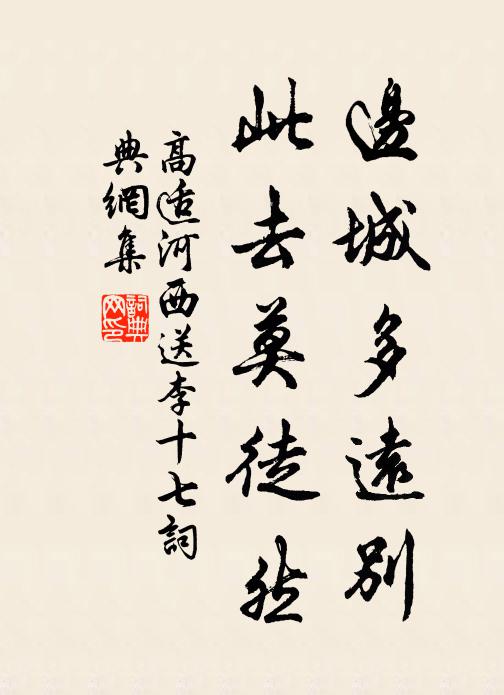 邊城多遠別
此去莫徒然
高适河西送李十七詞
典網集
詞典網印